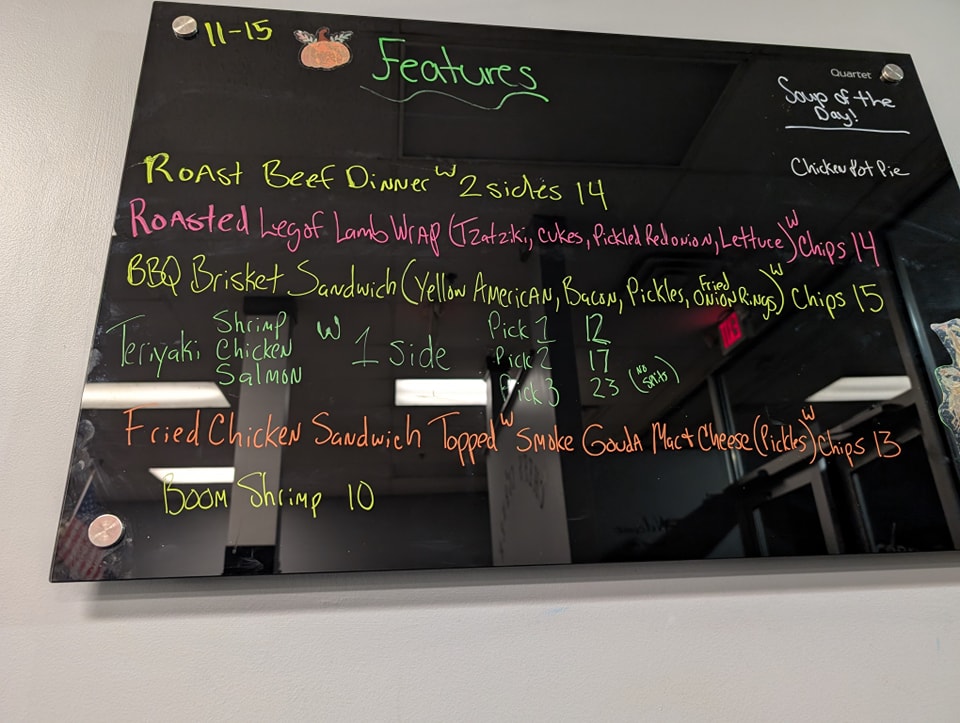 11-15
Features
Quartet
Soup of the
Day!
Chicken Pot Pie
Roast Beef Dinner w 2 sides 14
Roasted Leg of Lamb Wrap (Tzatziki, cukes, Pickled Red onion, Lettuce) w Chips 14
BBQ Brisket Sandwich (Yellow American, Bacon, Pickles, Fried Onion Rings) w Chips 15
Teriyaki Shrimp Chicken Salmon w 1 side
Pick 1 12
Pick 2 17
Pick 3 23 (No Splits)
Fried Chicken Sandwich Topped w Smoke Gouda Mac + Cheese (Pickles) w Chips 13
Boom Shrimp 10